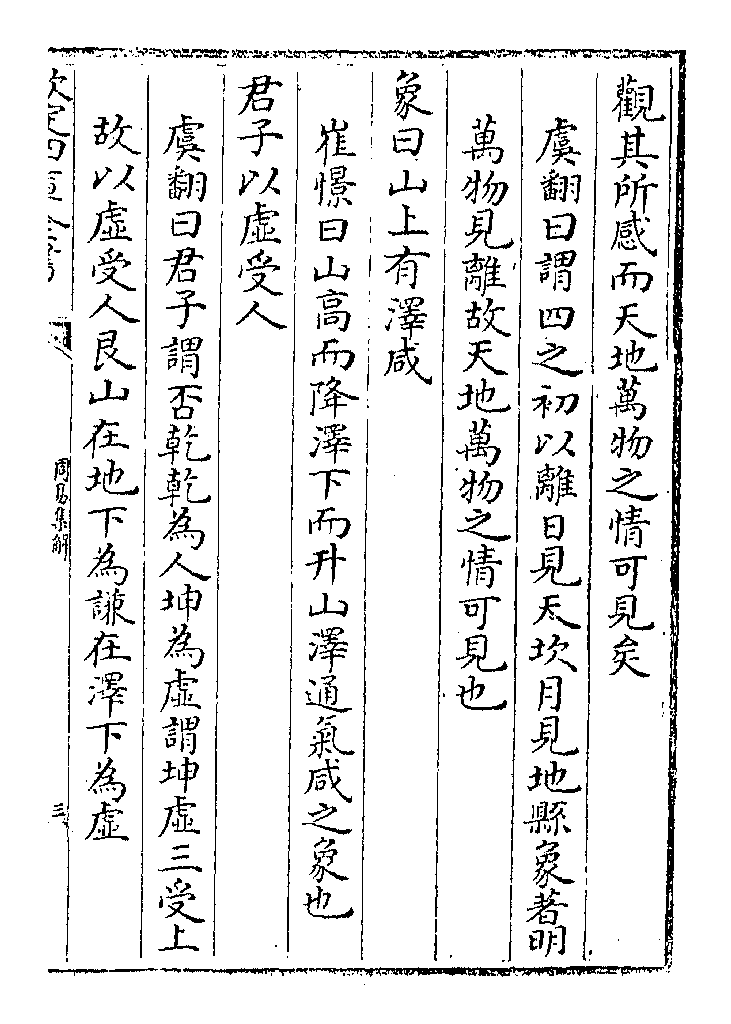 觀其所感而天地萬物之情可見矣
虞翻曰謂四之初以離日見天坎月見地縣象著明
萬物見離故天地萬物之情可見也
象曰山上有澤咸
崔憬曰山高而降澤下而升山澤通氣咸之象也
君子以虛受人
虞翻曰君子謂否乾乾為人坤為虛謂坤虛三受上
故以虛受人艮山在地下為謙在澤下為虛
欽定四庫全書
周易集解
三